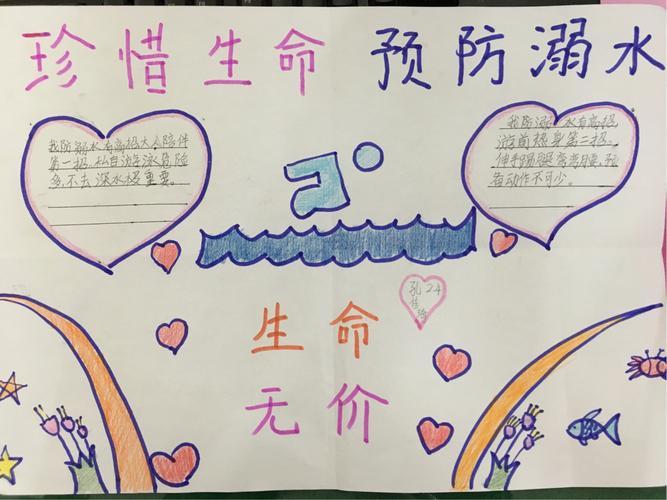 珍惜生命 预防溺水
我防溺水有高招大人陪伴
第一招.私自游泳危险
多.不去深水极重要。
我防溺水有高招
游前热身第二招.
伸手踢腿弯弯腰.预
备动作不可少。
孔 24
佳
生命
无价